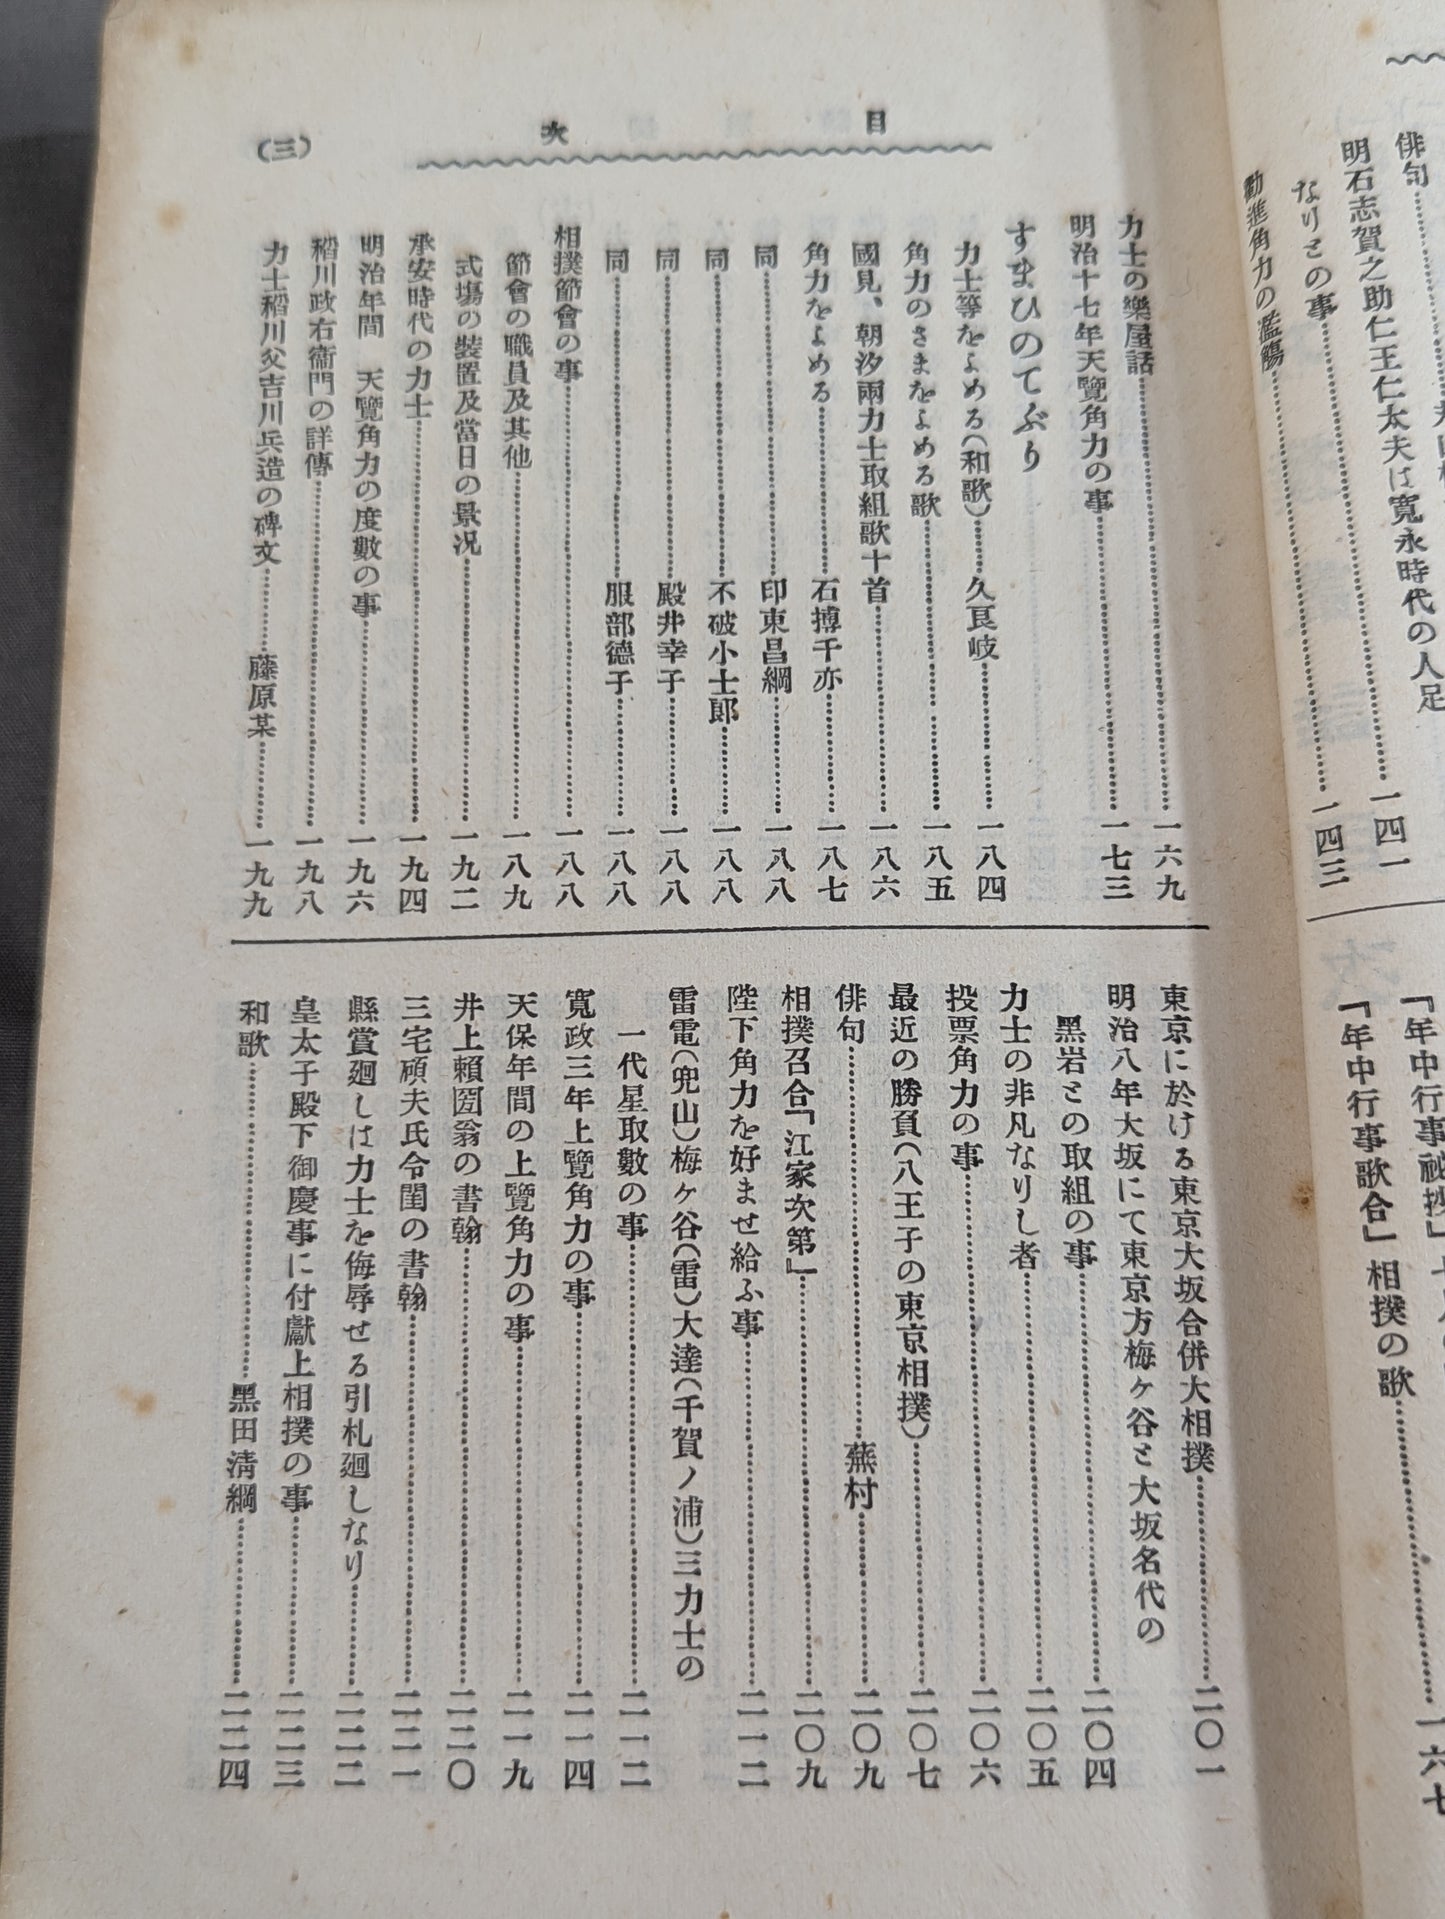 俳句
明石志賀之助仁王仁太夫は寬永時代の人足
なりとの事……一四一
勸進角力の濫觴……一四三
『年中行事祕抄』
『年中行事歌合』相撲の歌……一六七
目次
(三)
力士の樂屋話……一六九
明治十七年天覽角力の事……一七三
すまひのてぶり
力士等をよめる(和歌)……久良岐……一八四
角力のさまをよめる歌……一八五
國見、朝汐兩力士取組歌十首……一八六
角力をよめる……石榑千亦……一八七
同……印東昌綱……一八八
同……不破小士郞……一八八
同……殿井幸子……一八八
同……服部德子……一八八
相撲節會の事……一八八
節會の職員及其他……一八九
式塲の裝置及當日の景况……一九二
承安時代の力士……一九四
明治年間 天覽角力の度數の事……一九六
稻川政右衞門の詳傳……一九八
力士稻川父吉川兵造の碑文……藤原某……一九九
東京に於ける東京大坂合併大相撲……二〇一
明治八年大坂にて東京方梅ヶ谷と大坂名代の
黑岩との取組の事……二〇四
力士の非凡なりし者……二〇五
投票角力の事……二〇六
最近の勝負(八王子の東京相撲)……二〇七
俳句……蕪村……二〇九
相撲召合『江家次第』……二〇九
陛下角力を好ませ給ふ事……二一二
雷電(兜山)梅ヶ谷(雷)大達(千賀ノ浦)三力士の
一代星取數の事……二一二
寬政三年上覽角力の事……二一四
天保年間の上覽角力の事……二一九
井上賴圀翁の書翰……二二〇
三宅碩夫氏令閨の書翰……二二一
縣賞廻しは力士を侮辱せる引札廻しなり……二二二
皇太子殿下御慶事に付獻上相撲の事……二二三
和歌……黑田淸綱……二二四